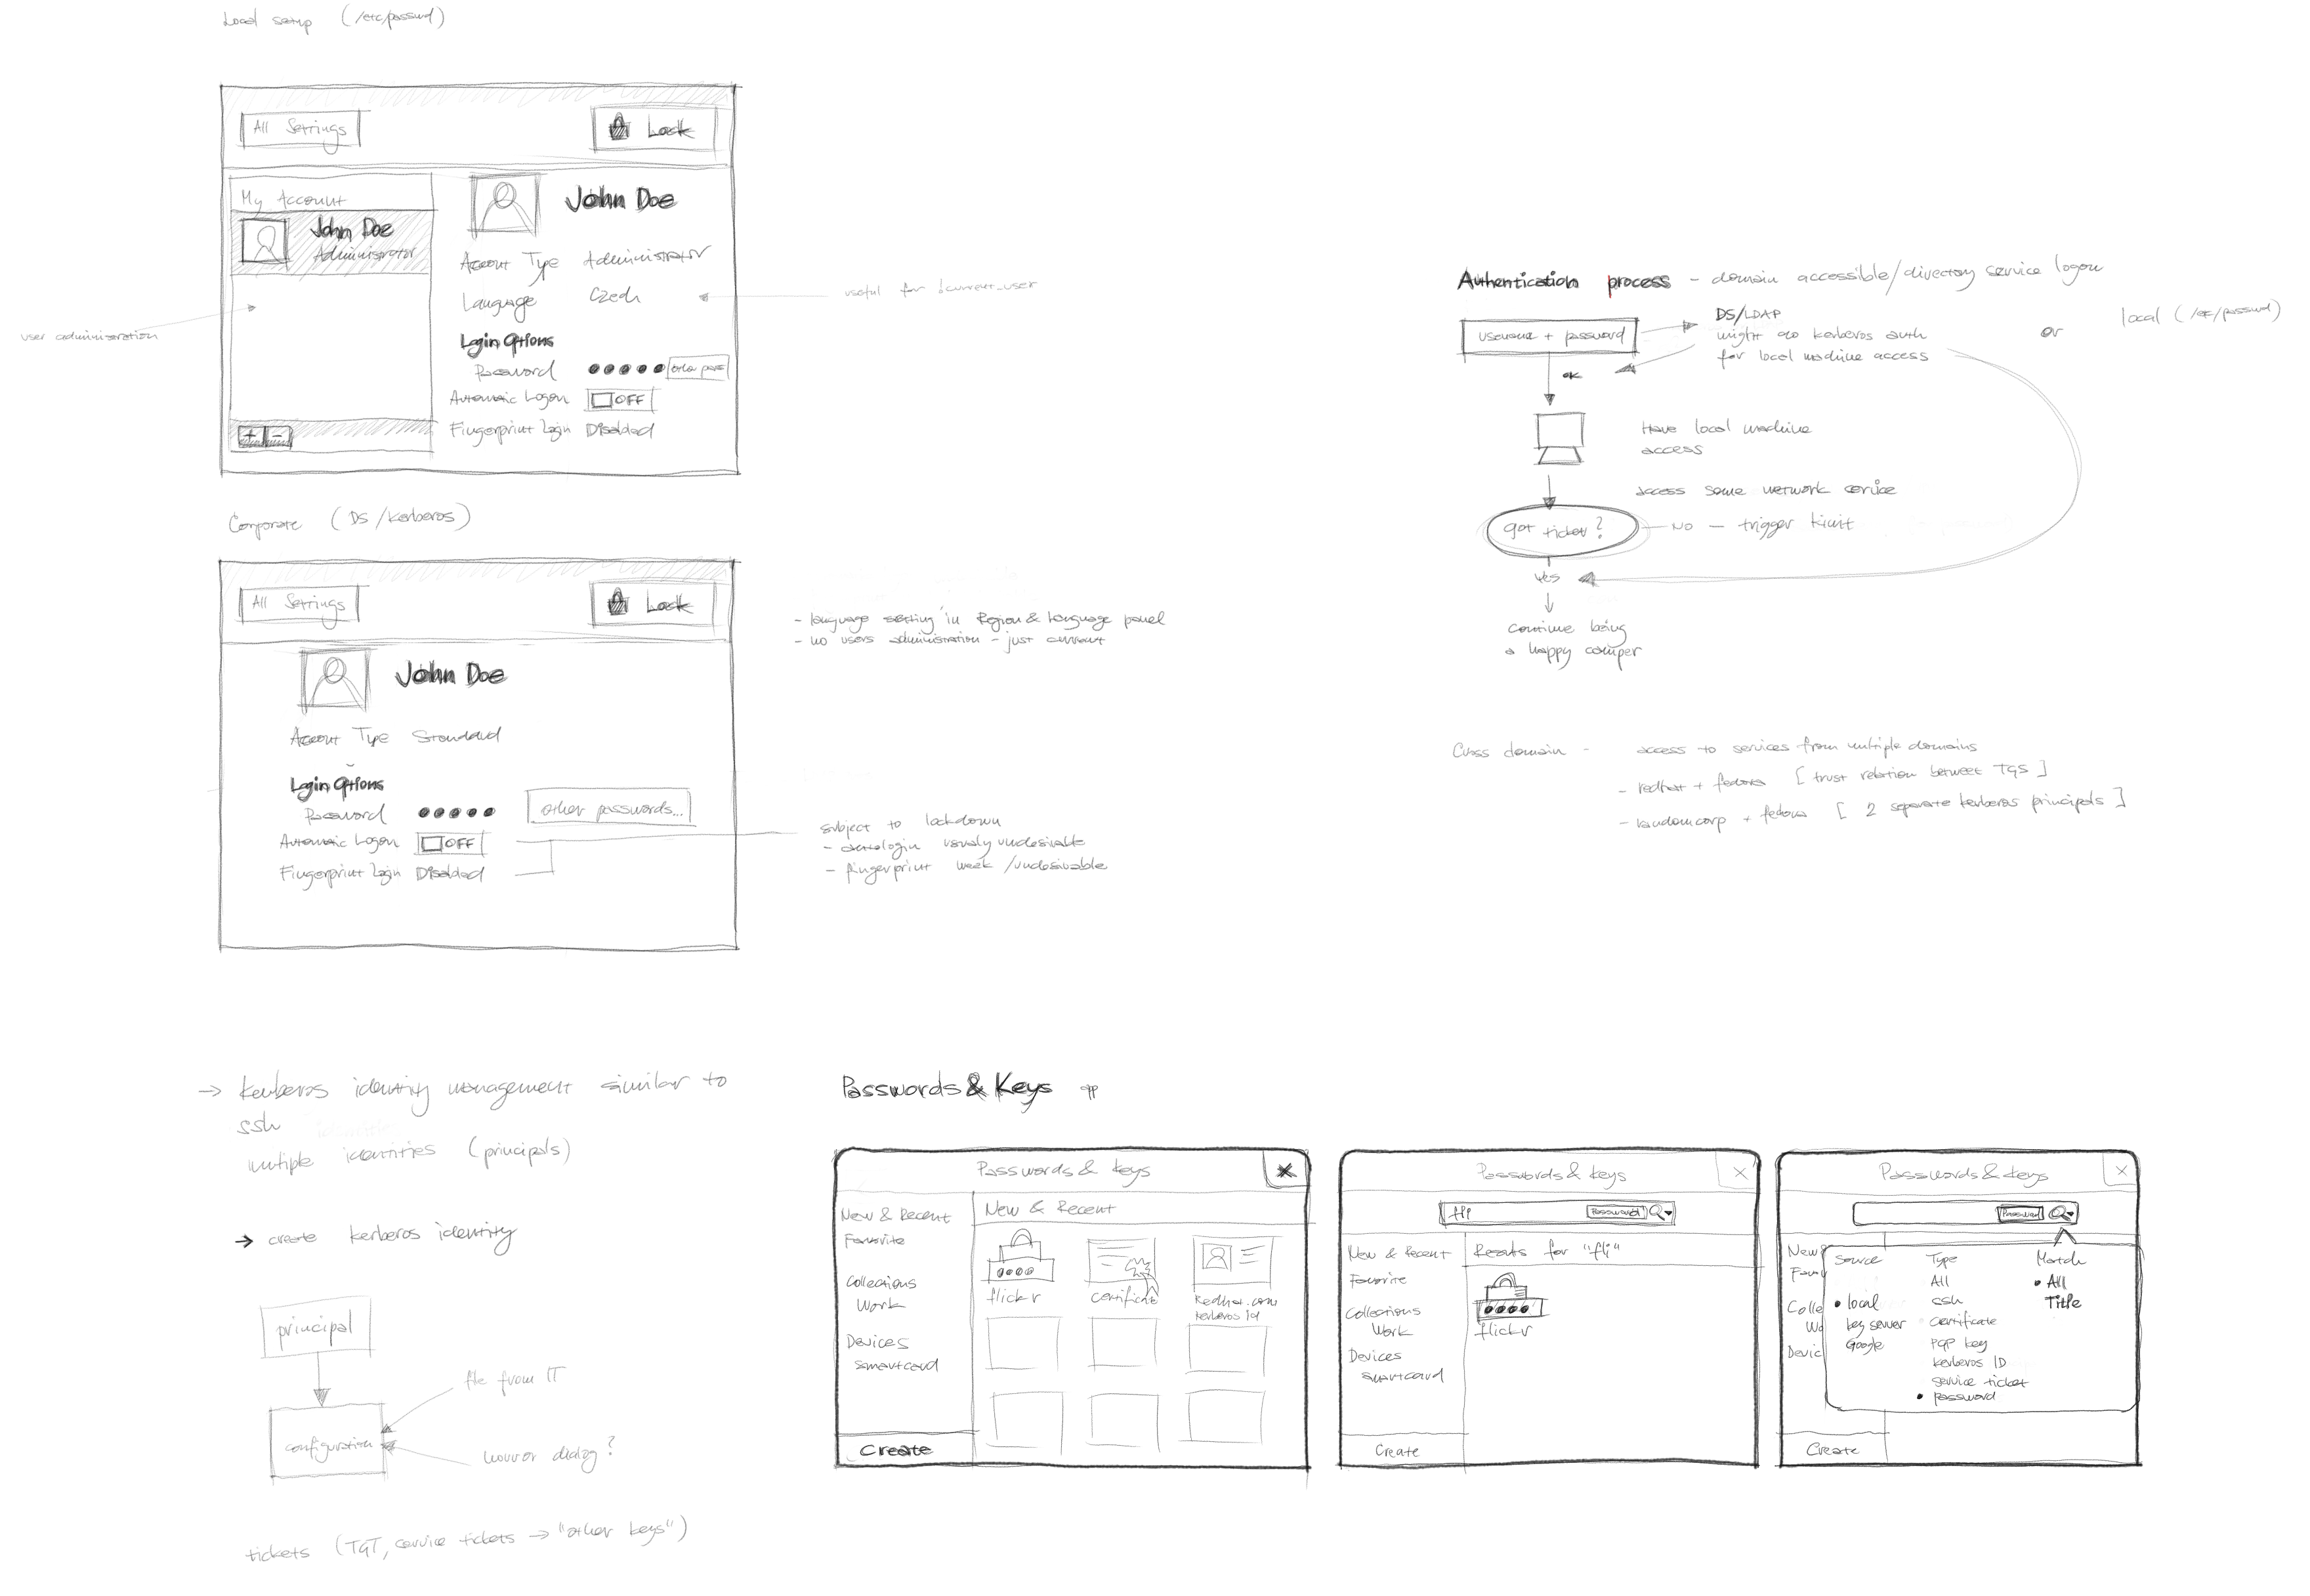 Local setup (/etc/passwd)
All Settings
Lock
My Account
John Doe
Administrator
John Doe
Account Type Administrator
Language Czech
Login Options
Password
Automatic Logon OFF
Fingerprint Login Disabled
+ -
user administration
useful for !current_user
Corporate (DS/Kerberos)
All Settings
Lock
John Doe
Account Type Standard
Login Options
Password other passwords...
Automatic Logon OFF
Fingerprint Login Disabled
- language setting in Region & Language panel
- no users administration - just current
subject to lockdown
- autologin usualy undesirable
- fingerprint week/undesirable
Authentication process - domain accessible/directory service logon
or
local (/etc/passwd)
username + password
DS/LDAP
might do kerberos auth
for local machine access
OK
Have local machine
access
access some network service
got ticket?
NO - trigger kinit
yes
continue being
a happy camper
Cross domain - access to services from multiple domains
- redhat + fedora [trust relation between TGS]
- randomcorp + fedora [2 separate kerberos principals]
→ Kerberos identity management similar to
ssh
multiple identities (principals)
→ create kerberos identity
principal
configuration
file from IT
horror dialog?
tickets (TGT, service tickets → "other keys")
Passwords & Keys app
Passwords & Keys
New & Recent
Favorite
Collections
Work
Devices
smartcard
Create
New & Recent
flickr
certificate
Redhat.com
kerberos id
Passwords & Keys
Password
New & Recent
Favorite
Collections
Work
Devices
smartcard
Create
Results for "fli"
flickr
Passwords & Keys
Password
New &
Favo
Colle
Wo
Devic
Create
Source
• local
key server
Google
Type
All
ssh
certificate
PGP key
kerberos ID
service ticket
• password
Match
• All
Title